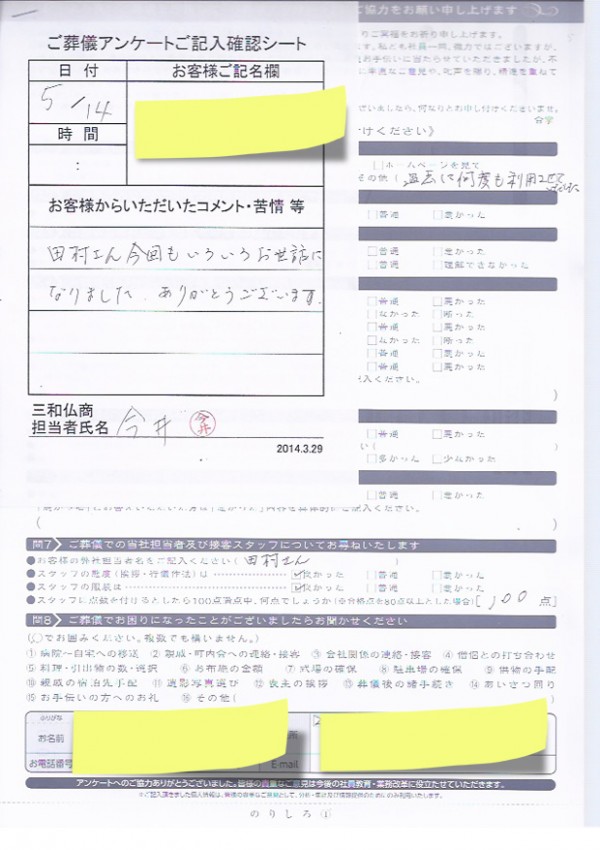 ご協力をお願い申し上げます
ご葬儀アンケートご記入確認シート
日付
お客様ご記名欄
5/14
時間
:
お客様からいただいたコメント・苦情 等
田村さん今回もいろいろお世話に
なりました。ありがとうございます。
三和仏商
担当者氏名 今井 今井
2014.3.29
合掌
けください》
□ホームページを見て
その他( 過去に何度も利用させて
□普通 □悪かった
□普通 □悪かった
□普通 □理解できなかった
□普通 □悪かった
□なかった □困った
□普通 □悪かった
□なかった □困った
□普通 □悪かった
□普通 □悪かった
記入ください。
)
□普通 □悪かった
□多かった □少なかった
□普通 □悪かった
( )
問7 ご葬儀での当社担当者及び接客スタッフについてお尋ねいたします
●お客様の弊社担当者名をご記入ください( 田村さん )
●スタッフの態度(挨拶・行儀作法)は ☑良かった □普通 □悪かった
●スタッフの服装は ☑良かった □普通 □悪かった
●スタッフに点数を付けるとしたら100点満点中、何点でしょうか(※合格点を80点以上とした場合)[ 100 点]
問8 ご葬儀でお困りになったことがございましたらお聞かせください
(○でお囲みください。複数でも構いません。)
①病院〜自宅への移送 ②親戚・町内会への連絡・接客 ③会社関係の連絡・接客 ④僧侶との打ち合わせ
⑤料理・引出物の数・選択 ⑥お布施の金額 ⑦式場の確保 ⑧駐車場の確保 ⑨供物の手配
⑩親戚の宿泊先手配 ⑪遺影写真選び ⑫喪主の挨拶 ⑬葬儀後の諸手続き ⑭あいさつ回り
⑮お手伝いの方へのお礼 ⑯その他( )
ふりがな
お名前
お電話番号
E-mail
アンケートへのご協力ありがとうございました。皆様の貴重なご意見は今後の社員教育・業務改革に役立たせていただきます。
のりしろ①